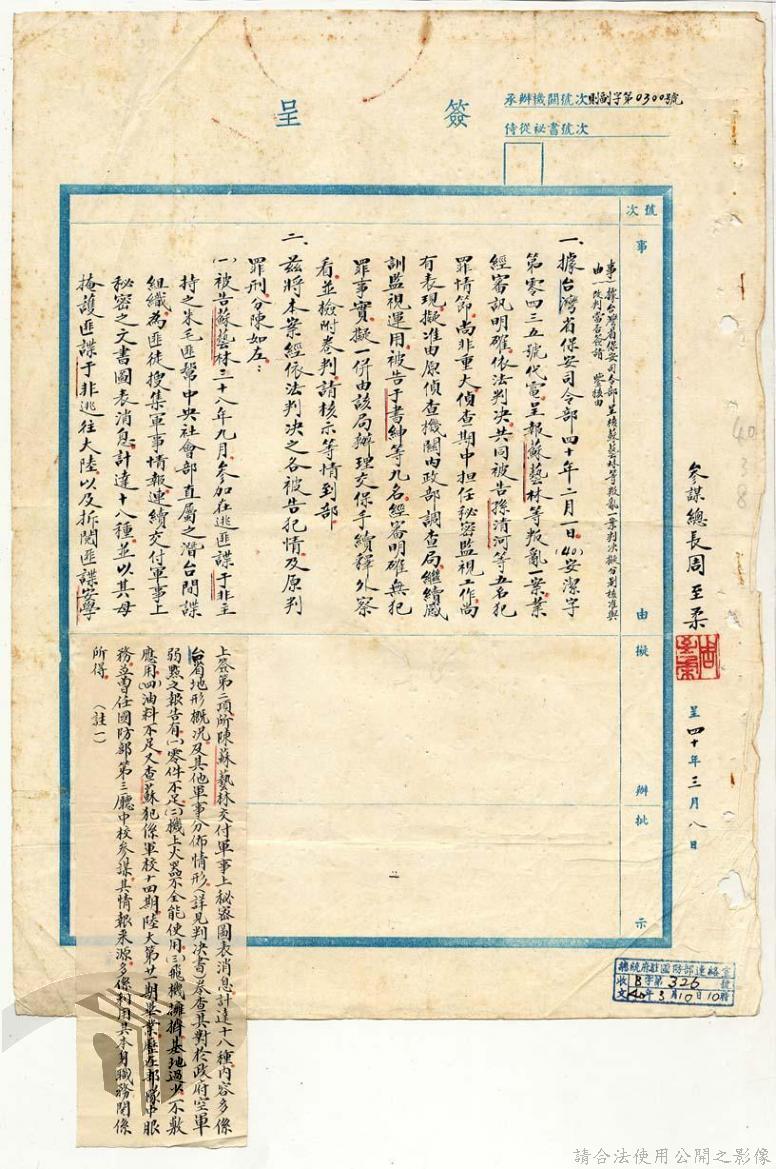 簽呈
承辦機關號次 則副字第0300號
侍從祕書號次
參謀總長周至柔
周至柔
呈 四十年三月八日
號次
事由
擬辦
批示
事由：據台灣省保安司令部呈核蘇藝林等叛亂一案判決擬分別核准與
改判當否簽請　鑒核由
一、據台灣省保安司令部四十年二月一日(40)安潔字
第零四三五號代電呈報蘇藝林等叛亂一案業
經審訊明確依法判決共同被告孫清河等五名犯
罪情節尚非重大偵查期中担任秘密監視工作尚
有表現擬准由原偵查機關內政部調查局繼續感
訓監視運用被告于書紳等九名經審明確無犯
罪事實擬一併由該局辦理交保手續釋外察
看並檢附卷判請核示等情到部
二、茲將本案經依法判決之各被告犯情及原判
罪刑分陳如左：
(一)被告蘇藝林三十八年九月參加在逃匪諜于非主
持之朱毛匪幫中央社會部直屬之潛台間諜
組織為匪徒搜集軍事情報連續交付軍事上
秘密之文書圖表消息計達十八種並以其母
掩護匪諜于非逃往大陸以及拆閱匪諜安學
上簽第二項所陳蘇藝林交付軍事上秘密圖表消息計達十八種內容多係
台省地形概況及其他軍事分佈情形(詳見判決書)卷查其對於政府空軍
弱點之報告有(一)零件不足(二)機上火器不全能使用(三)飛機擁擠基地過少不敷
應用(四)油料不足又查蘇犯係軍校十四期陸大第廿一期畢業歷在部隊中服
務並曾任國防部第三廳中校參謀其情報來源多係利用其本身職務關係
所得。　(註一)
總統府駐國防部連絡室
收文 B字第326號
40年3月10日10時
40.3.8
請合法使用公開之影像